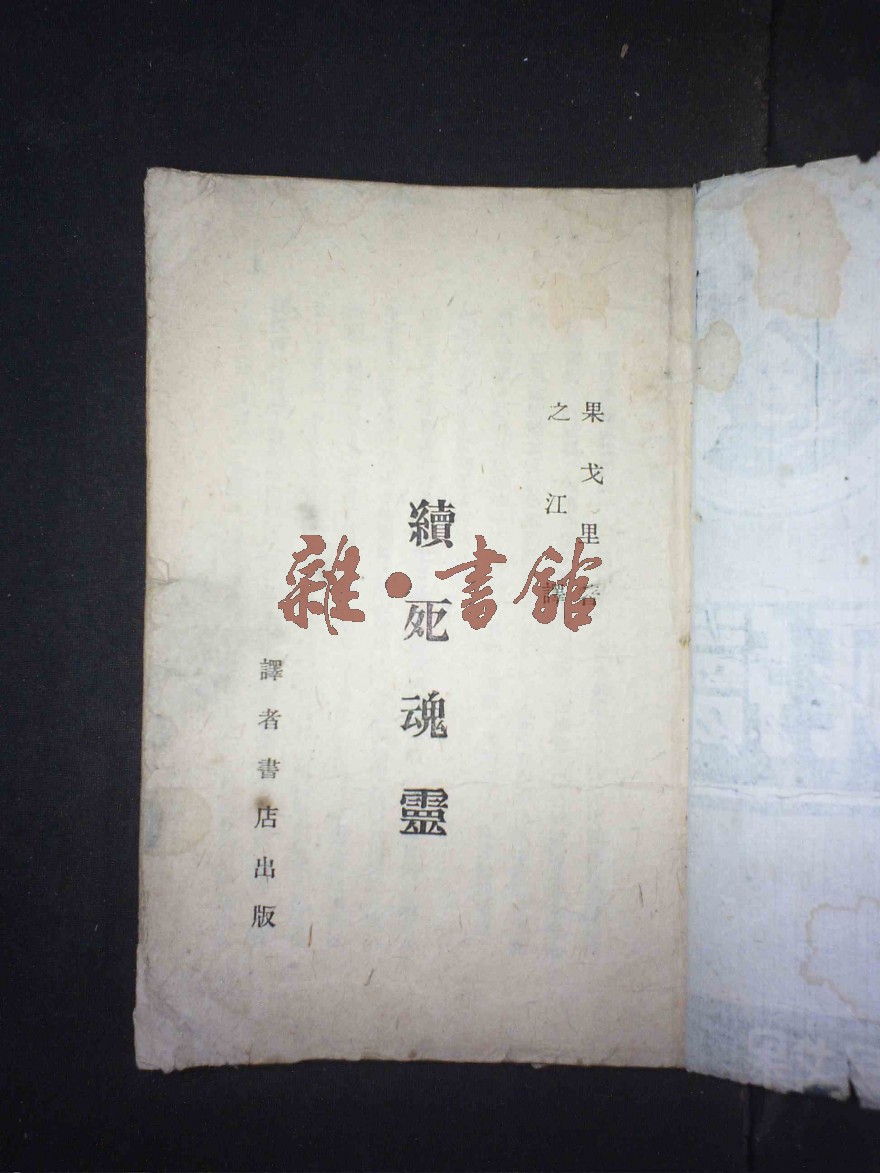 果戈里著
之江譯
續死魂靈
譯者書店出版
雜·書館